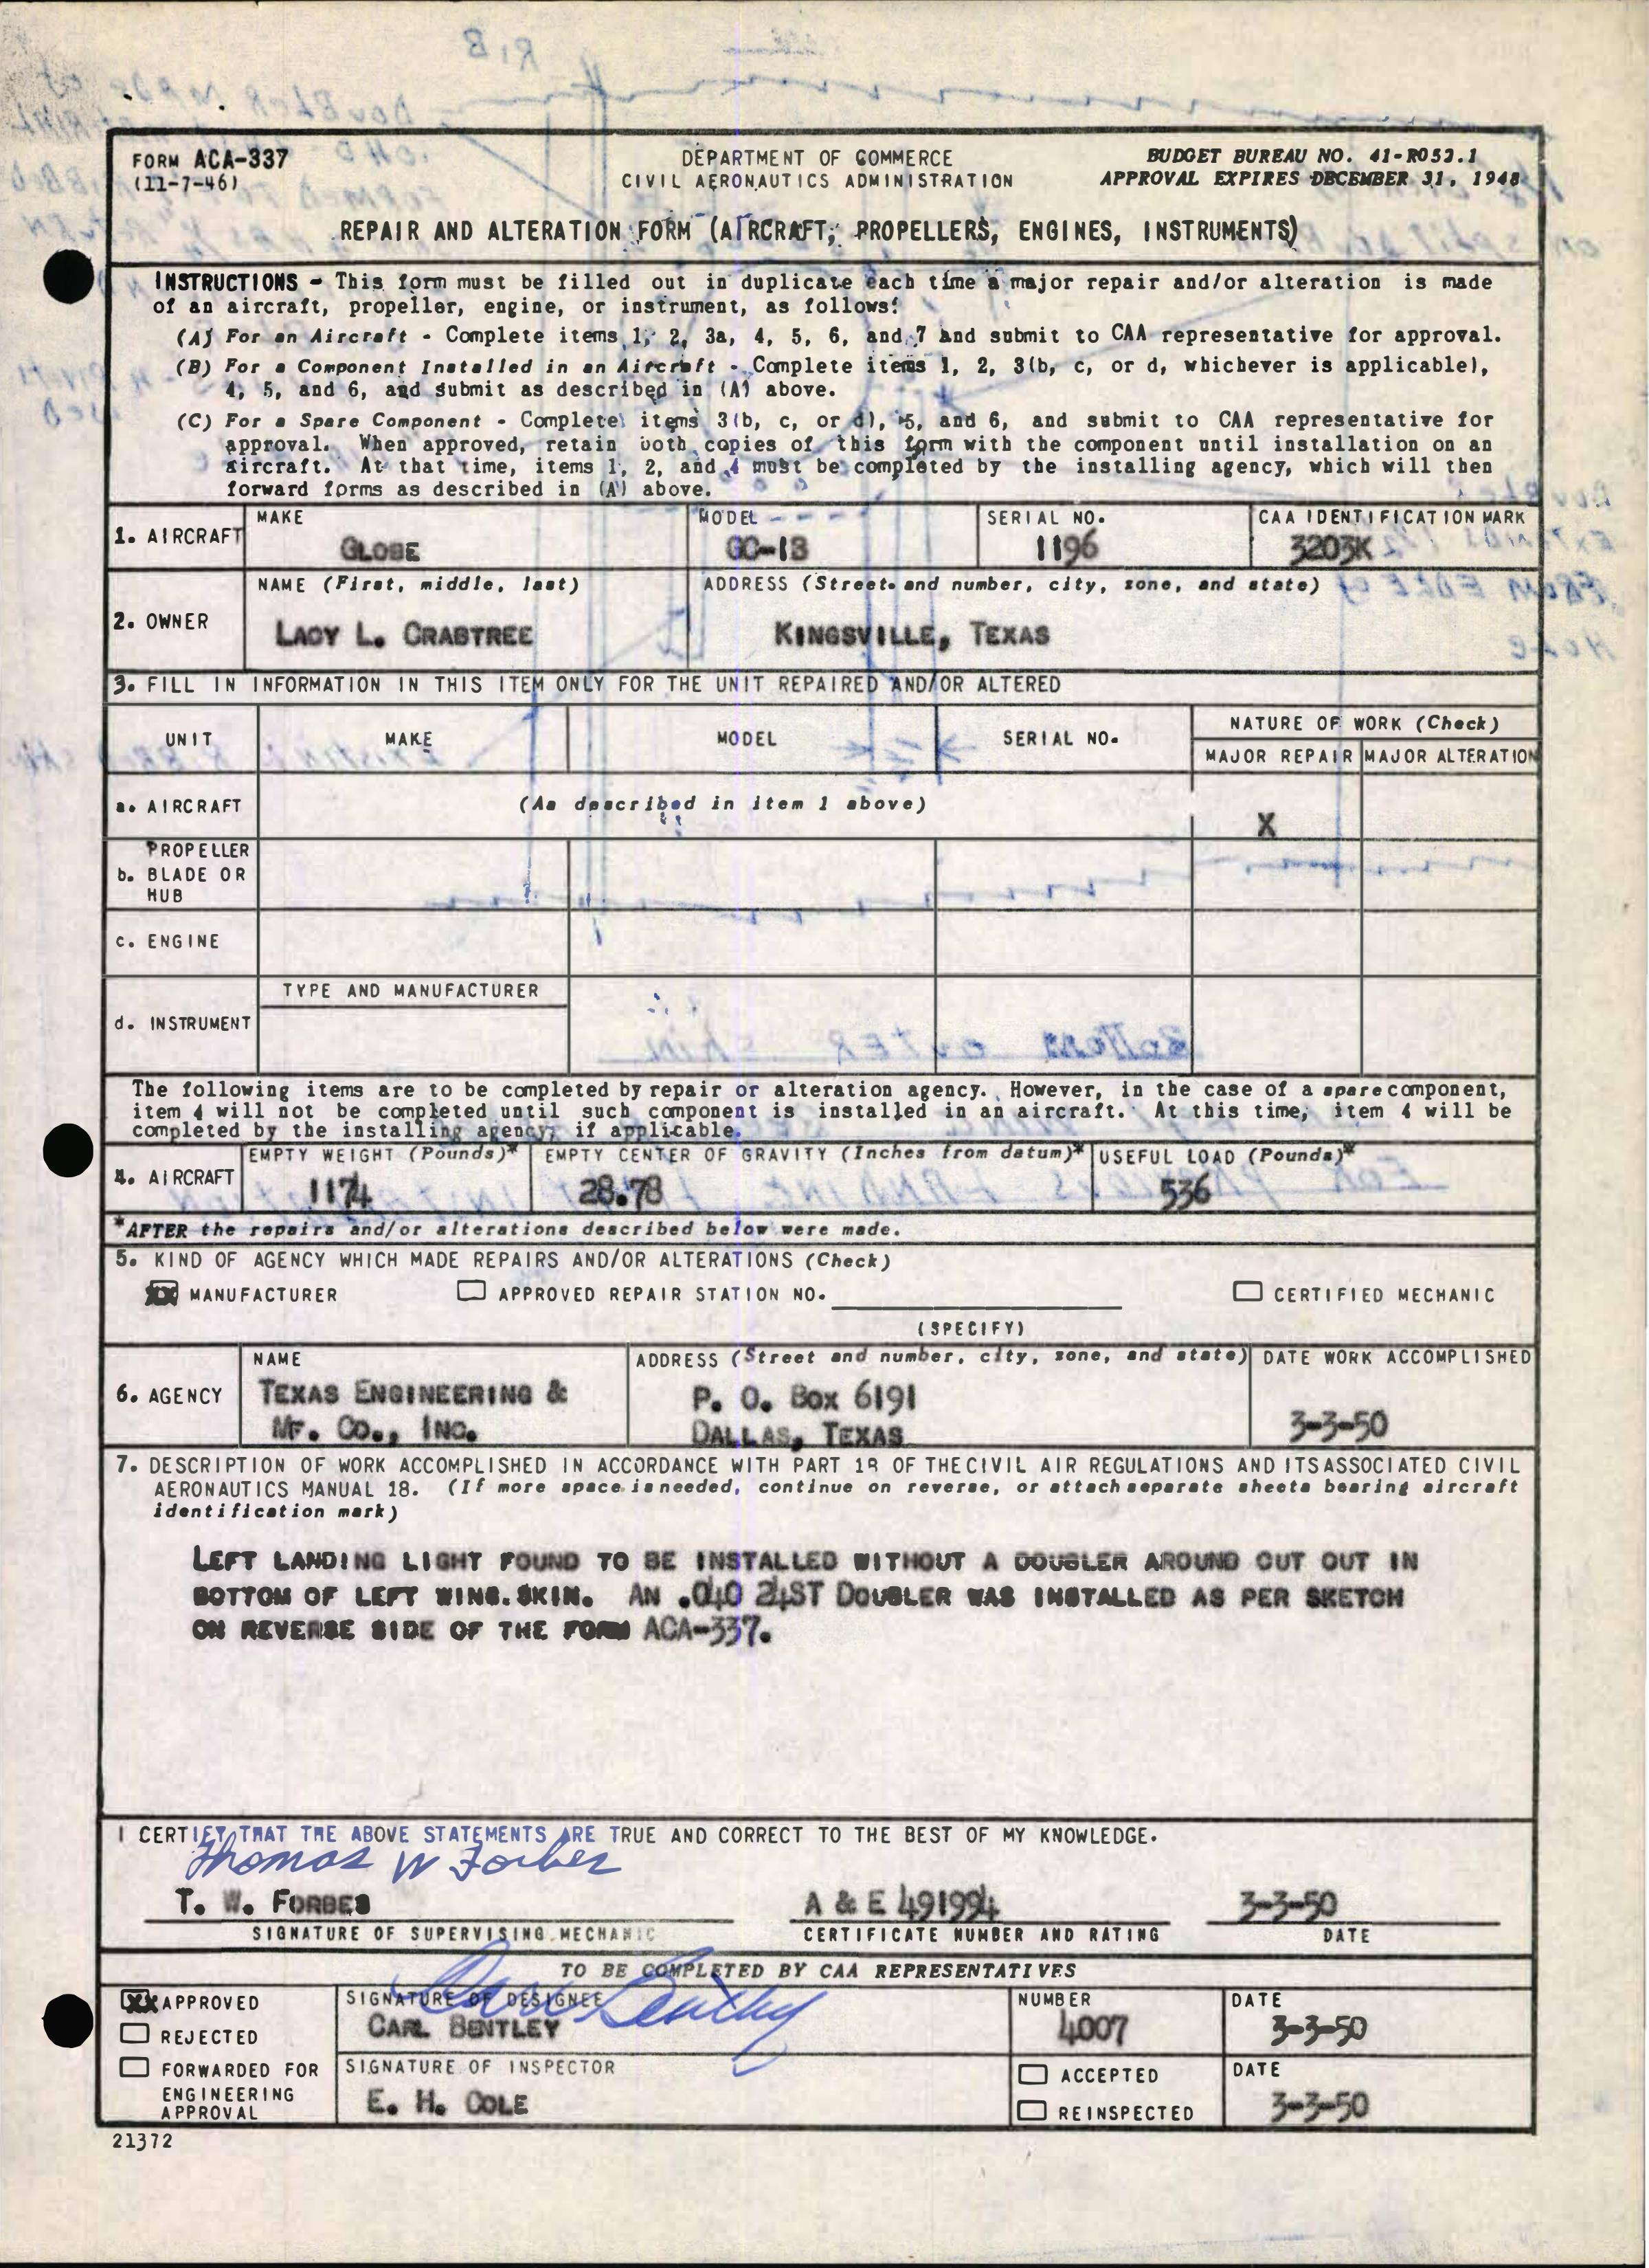 FORM ACA-337
(11-7-46)
DEPARTMENT OF COMMERCE
CIVIL AERONAUTICS ADMINISTRATION
BUDGET BUREAU NO. 41-R052.1
APPROVAL EXPIRES DECEMBER 31, 1948
REPAIR AND ALTERATION FORM (AIRCRAFT, PROPELLERS, ENGINES, INSTRUMENTS)
INSTRUCTIONS - This form must be filled out in duplicate each time a major repair and/or alteration is made
of an aircraft, propeller, engine, or instrument, as follows:
(A) For an Aircraft - Complete items 1, 2, 3a, 4, 5, 6, and 7 and submit to CAA representative for approval.
(B) For a Component Installed in an Aircraft - Complete items 1, 2, 3(b, c, or d, whichever is applicable),
4, 5, and 6, and submit as described in (A) above.
(C) For a Spare Component - Complete items 3(b, c, or d), 5, and 6, and submit to CAA representative for
approval. When approved, retain both copies of this form with the component until installation on an
aircraft. At that time, items 1, 2, and 4 must be completed by the installing agency, which will then
forward forms as described in (A) above.
1. AIRCRAFT
MAKE
GLOBE
MODEL
GC-1B
SERIAL NO.
1196
CAA IDENTIFICATION MARK
3203K
2. OWNER
NAME (First, middle, last)
LACY L. CRABTREE
ADDRESS (Street and number, city, zone, and state)
KINGSVILLE, TEXAS
3. FILL IN INFORMATION IN THIS ITEM ONLY FOR THE UNIT REPAIRED AND/OR ALTERED
UNIT
MAKE
MODEL
SERIAL NO.
NATURE OF WORK (Check)
MAJOR REPAIR
MAJOR ALTERATION
a. AIRCRAFT
(As described in item 1 above)
X
PROPELLER
b. BLADE OR
HUB
c. ENGINE
TYPE AND MANUFACTURER
d. INSTRUMENT
The following items are to be completed by repair or alteration agency. However, in the case of a spare component,
item 4 will not be completed until such component is installed in an aircraft. At this time, item 4 will be
completed by the installing agency, if applicable.
4. AIRCRAFT
EMPTY WEIGHT (Pounds)*
1174
EMPTY CENTER OF GRAVITY (Inches from datum)*
28.78
USEFUL LOAD (Pounds)*
536
*AFTER the repairs and/or alterations described below were made.
5. KIND OF AGENCY WHICH MADE REPAIRS AND/OR ALTERATIONS (Check)
XX MANUFACTURER
APPROVED REPAIR STATION NO.
(SPECIFY)
CERTIFIED MECHANIC
6. AGENCY
NAME
TEXAS ENGINEERING &
MF. CO., INC.
ADDRESS (Street and number, city, zone, and state)
P. O. BOX 6191
DALLAS, TEXAS
DATE WORK ACCOMPLISHED
3-3-50
7. DESCRIPTION OF WORK ACCOMPLISHED IN ACCORDANCE WITH PART 18 OF THE CIVIL AIR REGULATIONS AND ITS ASSOCIATED CIVIL
AERONAUTICS MANUAL 18. (If more space is needed, continue on reverse, or attach separate sheets bearing aircraft
identification mark)
LEFT LANDING LIGHT FOUND TO BE INSTALLED WITHOUT A DOUBLER AROUND CUT OUT IN
BOTTOM OF LEFT WING.SKIN. AN .040 24ST DOUBLER WAS INSTALLED AS PER SKETCH
ON REVERSE SIDE OF THE FORM ACA-337.
I CERTIFY THAT THE ABOVE STATEMENTS ARE TRUE AND CORRECT TO THE BEST OF MY KNOWLEDGE.
Thomas W Forbes
T. W. FORBES
A & E 491994
3-3-50
SIGNATURE OF SUPERVISING MECHANIC
CERTIFICATE NUMBER AND RATING
DATE
TO BE COMPLETED BY CAA REPRESENTATIVES
XX APPROVED
REJECTED
FORWARDED FOR
ENGINEERING
APPROVAL
SIGNATURE OF DESIGNEE
Carl Bentley
CARL BENTLEY
NUMBER
4007
DATE
3-3-50
SIGNATURE OF INSPECTOR
E. H. COLE
ACCEPTED
REINSPECTED
DATE
3-3-50
21372